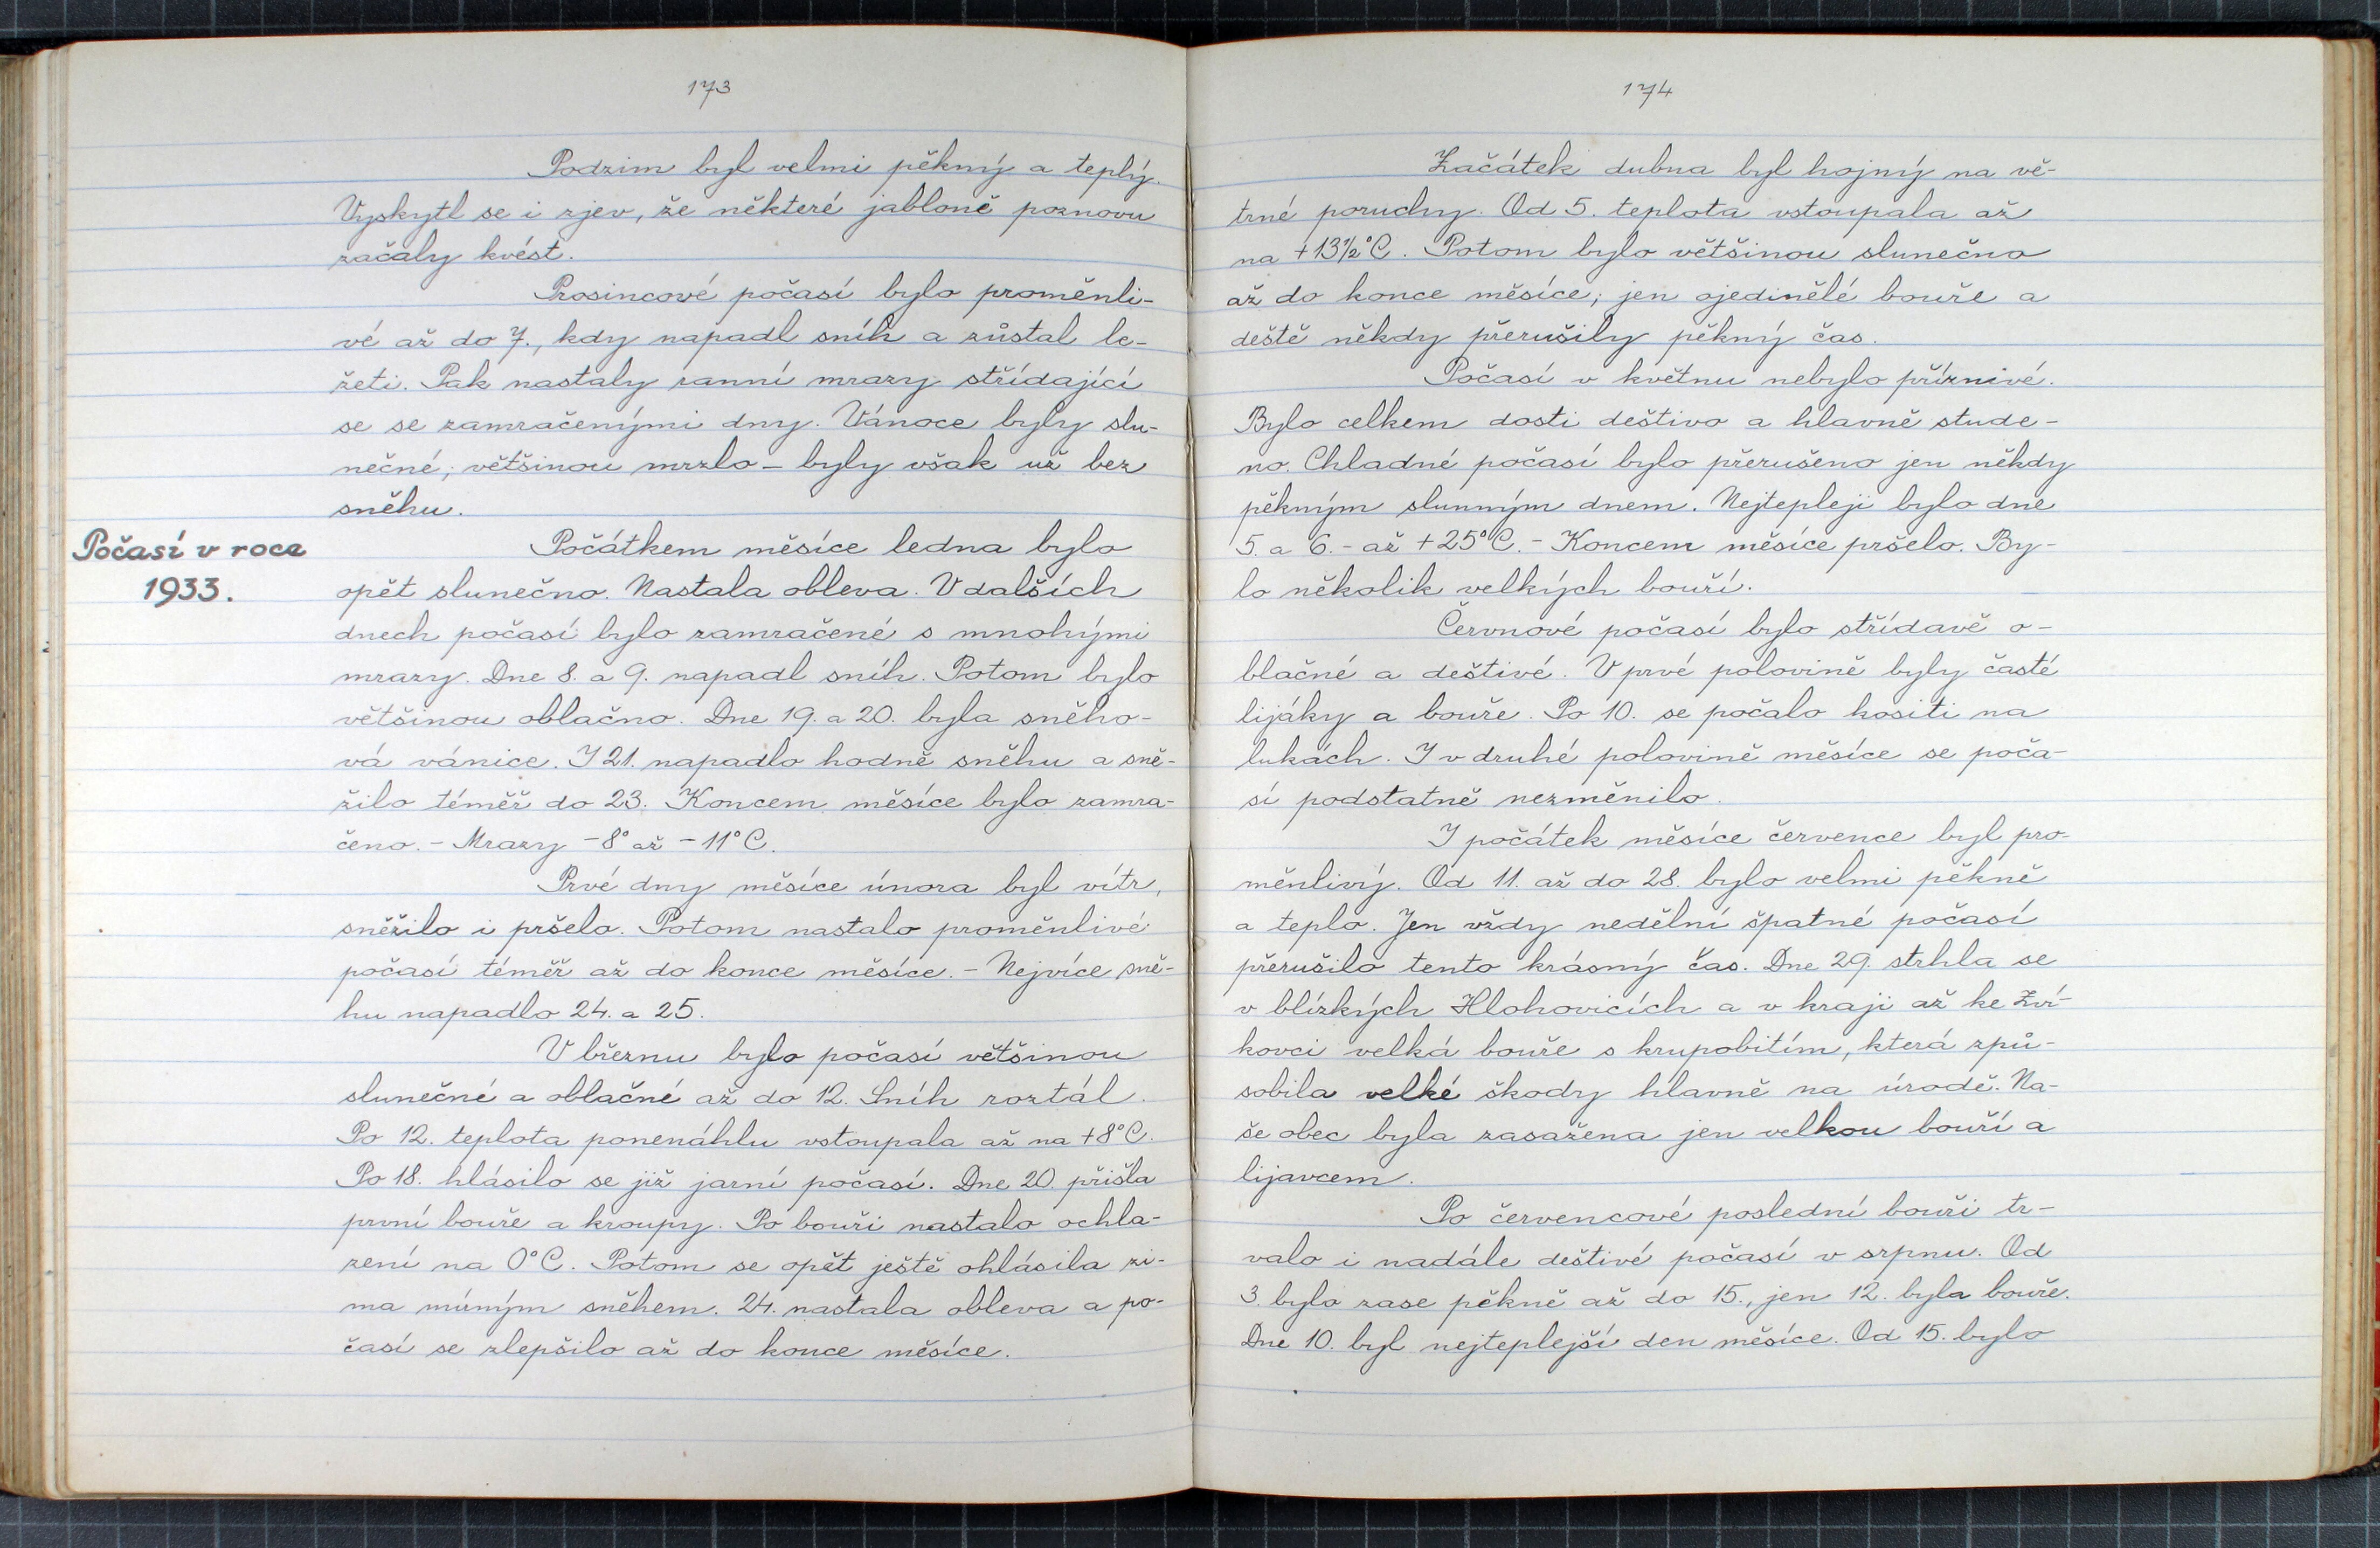 173
Podzim byl velmi pěkný a teplý.
Vyskytl se i zjev, že některé jabloně poznovu
začaly kvést.
Prosincové počasí bylo proměnli-
vé až do 7., kdy napadl sníh a zůstal le-
žeti. Pak nastaly ranní mrazy střídající
se se zamračenými dny. Vánoce byly slu-
nečné; většinou mrzlo - byly však už bez
sněhu.
Počasí v roce
1933.
Počátkem měsíce ledna bylo
opět slunečno. Nastala obleva. V dalších
dnech počasí bylo zamračené s mnohými
mrazy. Dne 8. a 9. napadl sníh. Potom bylo
většinou oblačno. Dne 19. a 20. byla sněho-
vá vánice. I 21. napadlo hodně sněhu a sně-
žilo téměř do 23. Koncem měsíce bylo zamra-
čeno. - Mrazy -8° až -11°C.
Prvé dny měsíce února byl vítr,
sněžilo i pršelo. Potom nastalo proměnlivé
počasí téměř až do konce měsíce. - Nejvíce sně-
hu napadlo 24. a 25.
V březnu bylo počasí většinou
slunečné a oblačné až do 12. Sníh roztál.
Po 12. teplota ponenáhlu vstoupala až na +8°C.
Po 18. hlásilo se již jarní počasí. Dne 20. přišla
první bouře a kroupy. Po bouři nastalo ochla-
zení na 0°C. Potom se opět ještě ohlásila zi-
ma mírným sněhem. 24. nastala obleva a po-
časí se zlepšilo až do konce měsíce.
174
Začátek dubna byl hojný na vě-
trné poruchy. Od 5. teplota vstoupala až
na +13½°C. Potom bylo většinou slunečno
až do konce měsíce; jen ojedinělé bouře a
deště někdy přerušily pěkný čas.
Počasí v květnu nebylo příznivé.
Bylo celkem dosti deštivo a hlavně stude-
no. Chladné počasí bylo přerušeno jen někdy
pěkným slunným dnem. Nejtepleji bylo dne
5. a 6. - až +25°C. - Koncem měsíce pršelo. By-
lo několik velkých bouří.
Červnové počasí bylo střídavě o-
blačné a deštivé. V prvé polovině byly časté
lijáky a bouře. Po 10. se počalo kositi na
lukách. I v druhé polovině měsíce se poča-
sí podstatně nezměnilo.
I počátek měsíce července byl pro-
měnlivý. Od 11. až do 28. bylo velmi pěkně
a teplo. Jen vždy nedělní špatné počasí
přerušilo tento krásný čas. Dne 29. strhla se
v blízkých Hlohovicích a v kraji až ke Zví-
kovci velká bouře s krupobitím, která způ-
sobila velké škody hlavně na úrodě. Na-
še obec byla zasažena jen velkou bouří a
lijavcem.
Po červencové poslední bouři tr-
valo i nadále deštivé počasí v srpnu. Od
3. bylo zase pěkně až do 15., jen 12. byla bouře.
Dne 10. byl nejteplejší den měsíce. Od 15. bylo